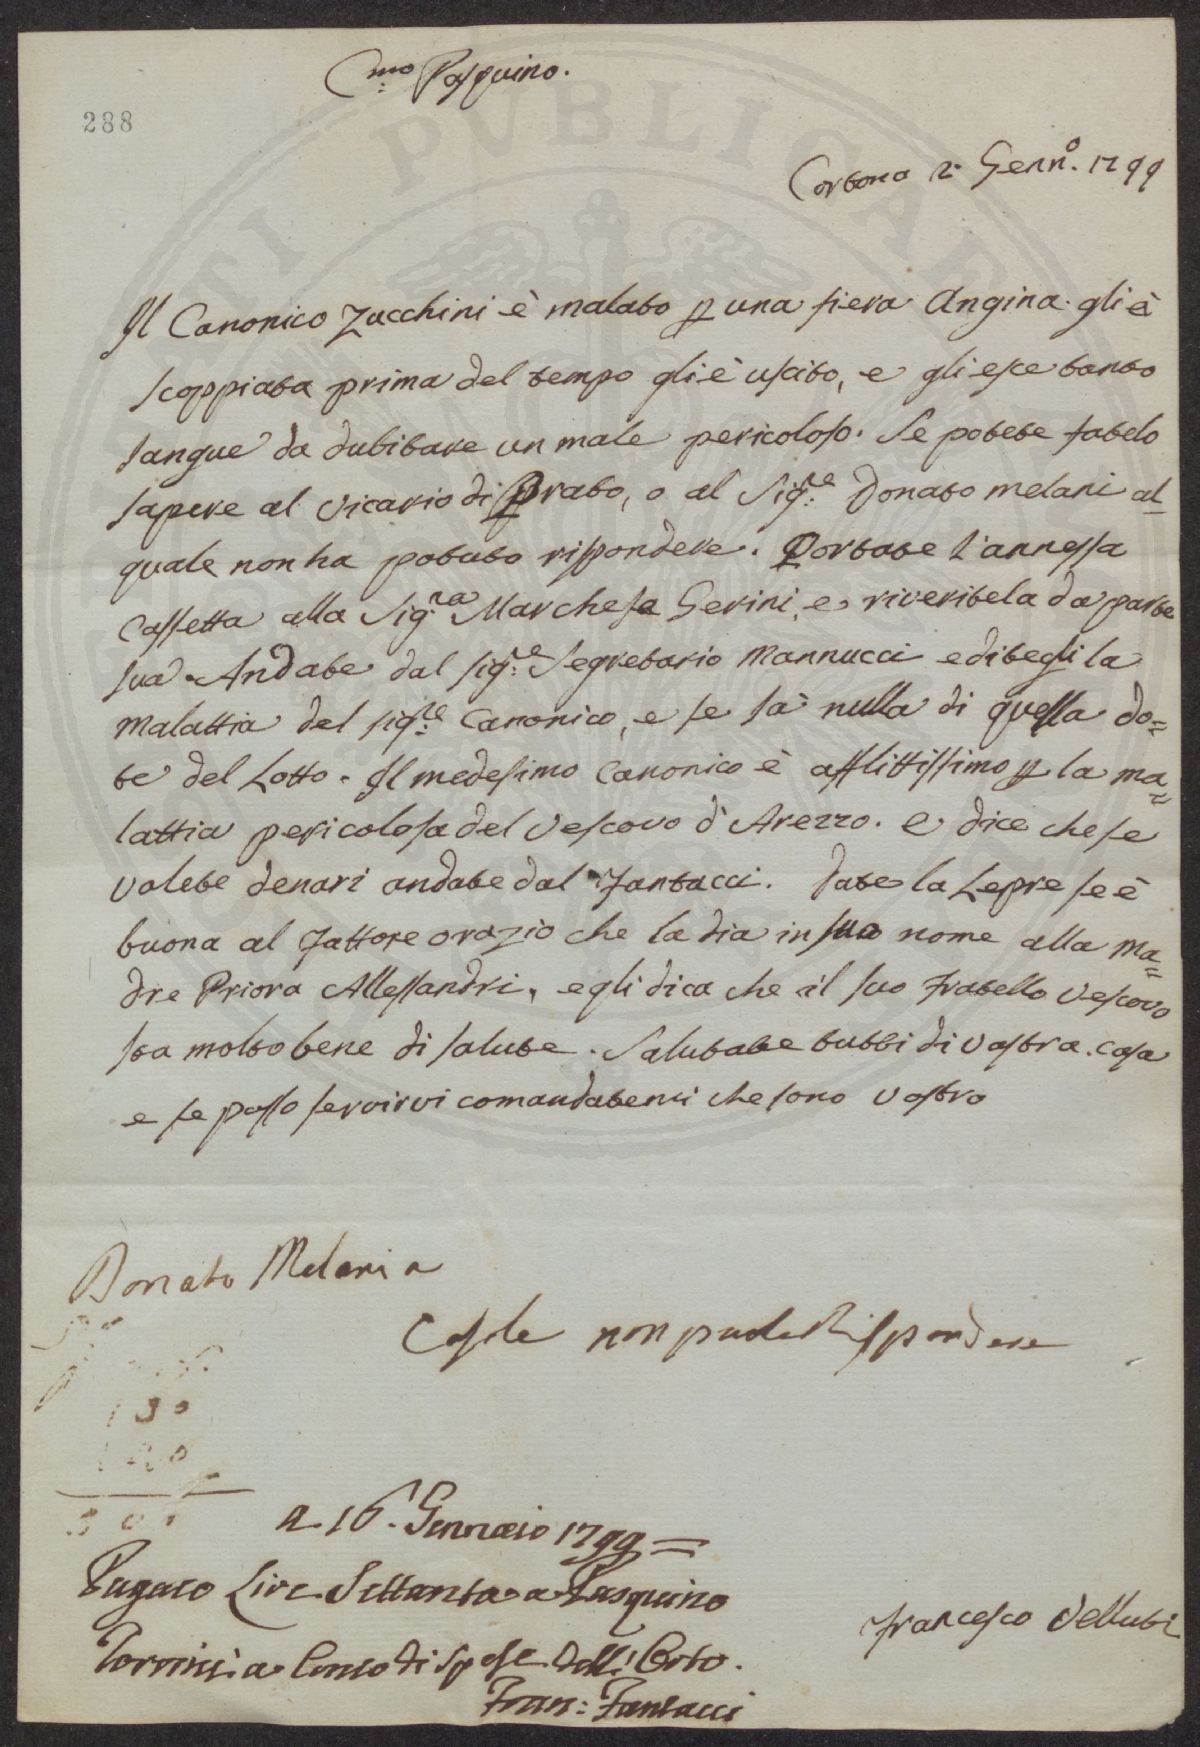 C.mo Pasquino.
288
Cortona 2. Genn.o 1799
Il Canonico Zucchini è malato p una fiera Angina. gli è
scoppiata prima del tempo gli è uscito, e gli esce tanto
sangue da dubitare un male pericoloso. Se potete fatelo
sapere al Vicario di Prato, o al Sig.re Donato Melani al
quale non ha potuto rispondere. Portate l'annessa
Cassetta alla Sig.ra Marchesa Gerini, e riveritela da parte
sua. Andate dal Sig.re Segretario Mannucci e ditegli la
malattia del Sig.re Canonico, e se sà nulla di quella do=
te del Lotto. Il medesimo Canonico è afflittissimo p la ma=
lattia pericolosa del Vescovo d'Arezzo. e dice che se
volete denari andate dal Fantacci. Date la Lepre se è
buona al Fattore Orazio che la dia in suo nome alla Ma=
dre Priora Allessandri, e gli dica che il suo Fratello Vescovo
sta molto bene di salute. Salutate tutti di Vostra Casa
e se posso servirvi comandatemi che sono Vostro
Donato Melani a
Casole non puole Rispondere
a 16. Gennaio 1799=
Pagato Lire Settanta a Pasquino
Tommisi a Conto di Spese dell'Orto.
Fran: Fantacci
Francesco Velluti